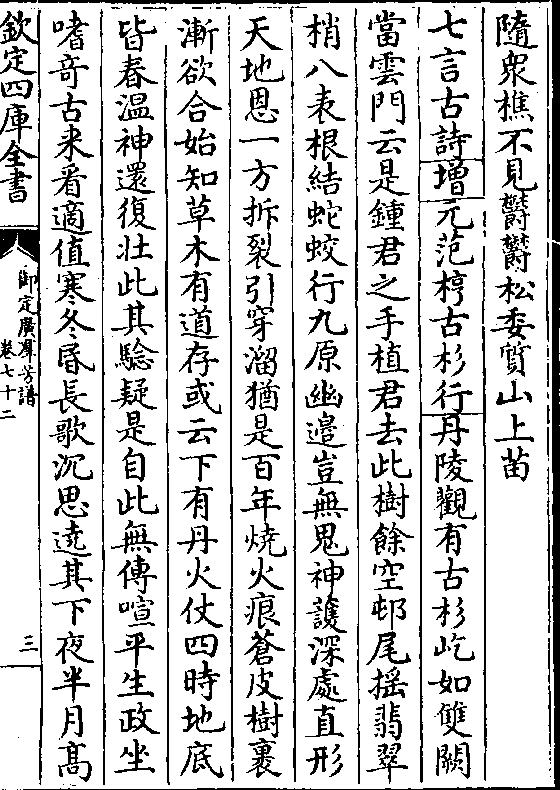 隨衆樵不見鬱鬱松委質山上苗
七言古詩增元范梈古杉行丹陵觀有古杉屹如雙闕
當雲門云是鍾君之手植君去此樹餘空邨尾揺翡翠
梢八表根結蛇蛟行九原幽邉豈無鬼神護深處直形
天地恩一方拆裂引穿溜猶是百年燒火痕蒼皮樹裏
漸欲合始知草木有道存或云下有丹火仗四時地底
皆春温神還復壯此其驗疑是自此無傳喧平生政坐
嗜竒古来看適值寒冬昬長歌沉思遶其下夜半月髙
欽定四庫全書
御定廣羣芳譜
卷七十二
三